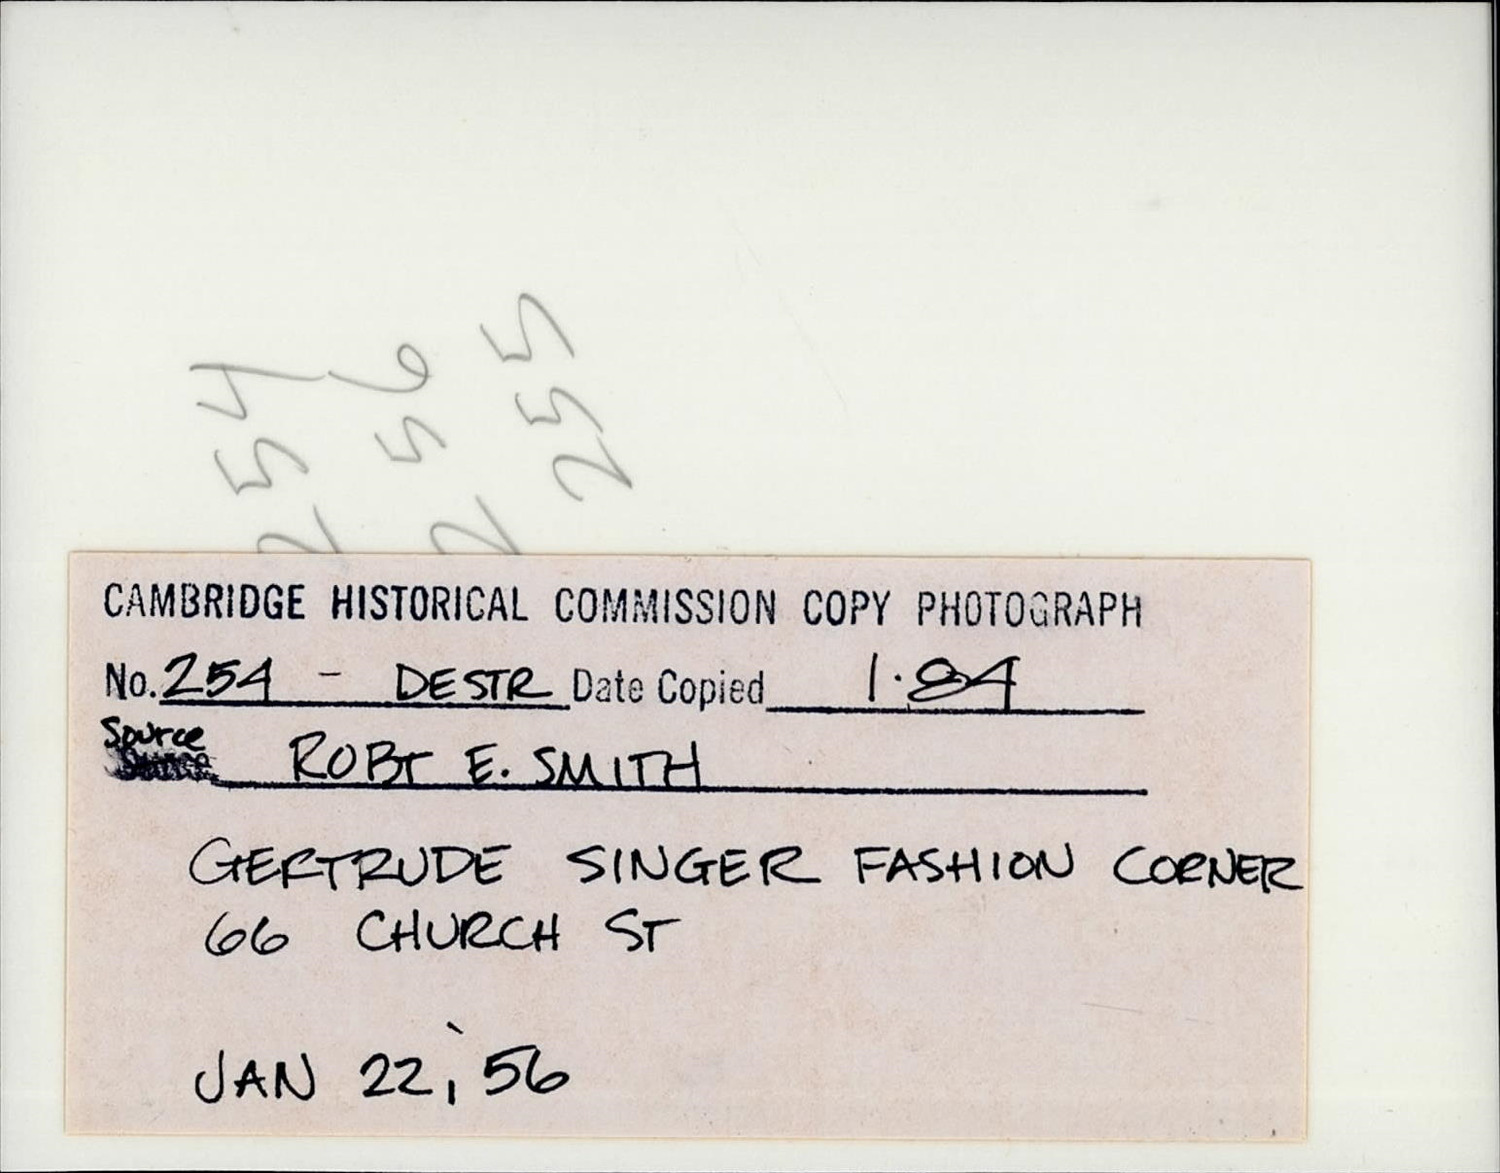 254
256
255
CAMBRIDGE HISTORICAL COMMISSION COPY PHOTOGRAPH
No. 254 - DESTR Date Copied 1·84
Source
ROBT E. SMITH
GERTRUDE SINGER FASHION CORNER
66 CHURCH ST
JAN 22, '56